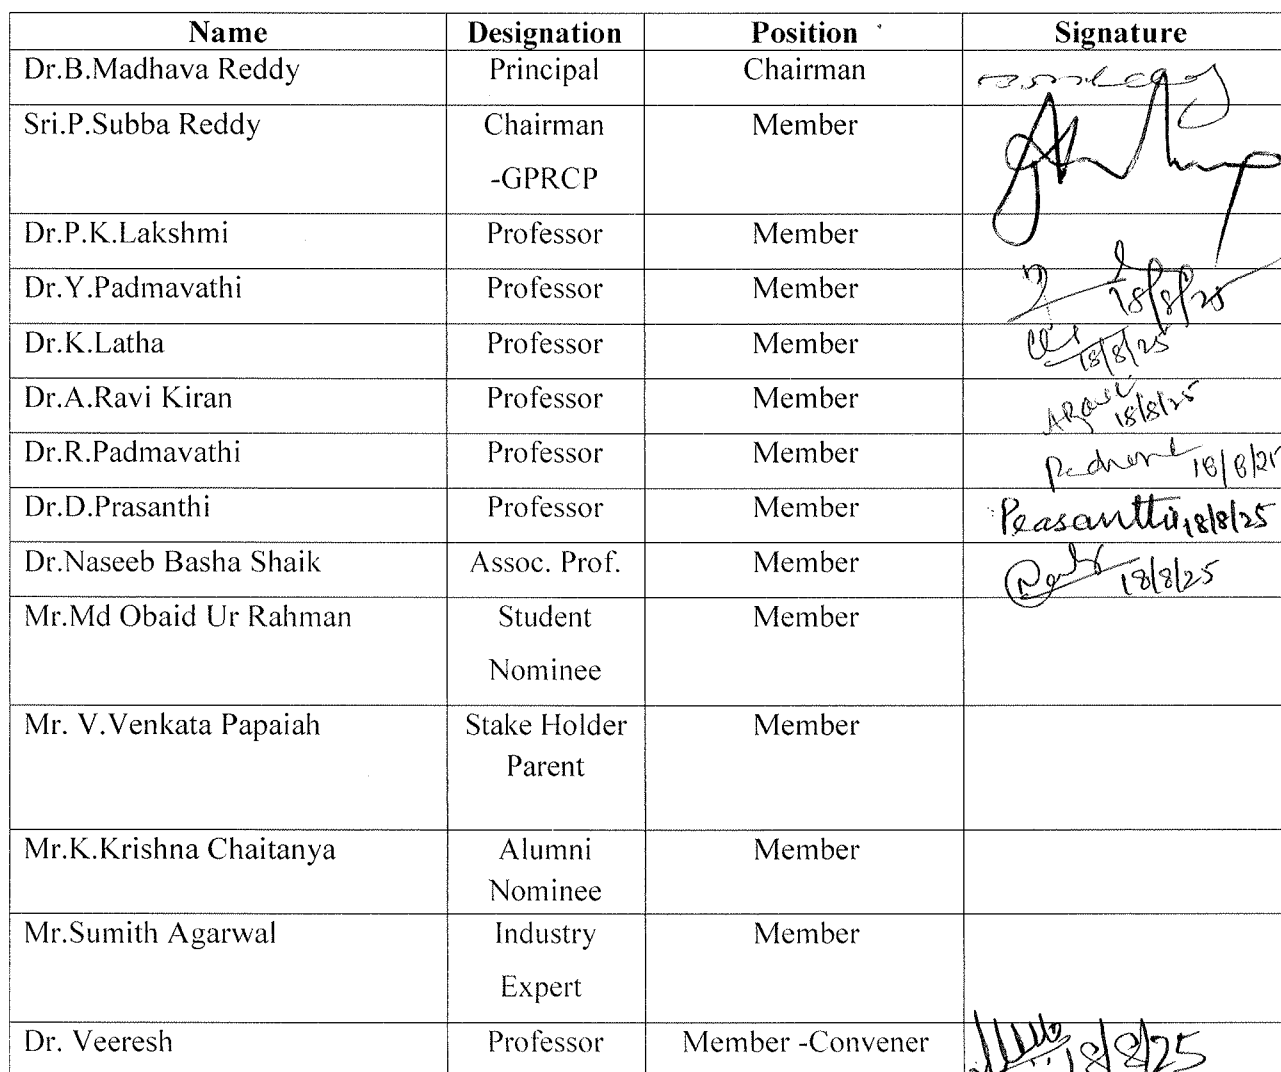 Name Designation Position Signature
Dr.B.Madhava Reddy Principal Chairman
Sri.P.Subba Reddy Chairman Member
-GPRCP
Dr.P.K.Lakshmi Professor Member
Dr.Y.Padmavathi Professor Member 18/8/25
Dr.K.Latha Professor Member 18/8/25
Dr.A.Ravi Kiran Professor Member 18/8/25
Dr.R.Padmavathi Professor Member 18/8/25
Dr.D.Prasanthi Professor Member Prasanthi 18/8/25
Dr.Naseeb Basha Shaik Assoc. Prof. Member 18/8/25
Mr.Md Obaid Ur Rahman Student Member
Nominee
Mr. V.Venkata Papaiah Stake Holder Member
Parent
Mr.K.Krishna Chaitanya Alumni Member
Nominee
Mr.Sumith Agarwal Industry Member
Expert
Dr. Veeresh Professor Member -Convener 18/8/25